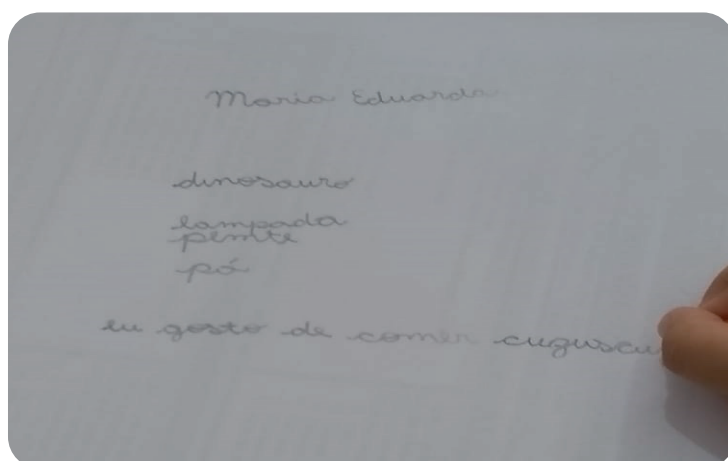 Maria Eduarda
dinosauro
lampada
pemte
pó
eu gosto de comer cuguscu